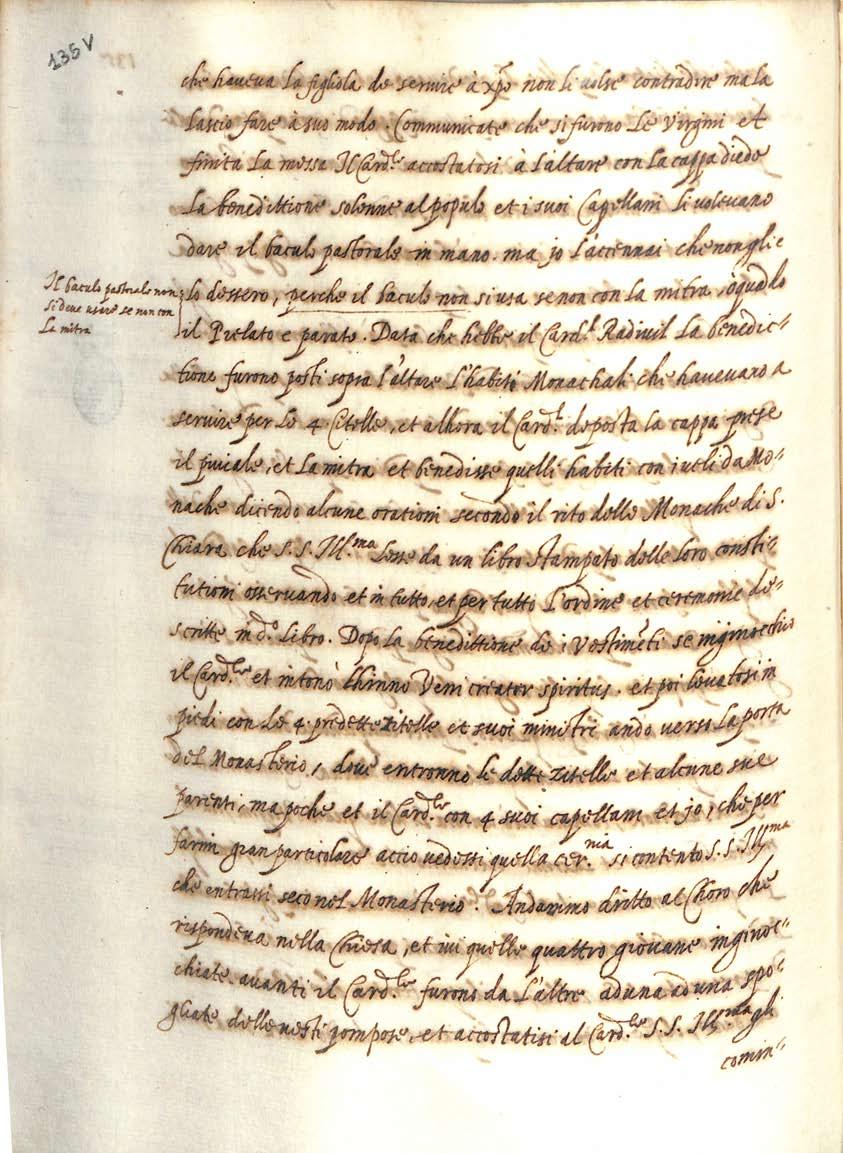 135 V
che haveva la figliola de servire à xpo non li volse contradire ma la
lascio fare à suo modo. Communicate che si furono le Virgini et
finita la messa Il Card.le accostatosi à l'altare con la cappa diede
la benedittione solenne al populo et i suoi Capellani li volevano
dare il baculo pastorale in mano. ma jo l'accennai che non glie
Il baculo pastorale non
si deve usare se non con
la mitra
lo dessero, perche il baculo non si usa se non con la mitra, ò quãdo
il Prelato e parato. Data che hebbe il Card.l Radivil la benedic-
tione furono posti sopra l'altare l'habiti Monachali che havevano a
servire per le 4. Citelle, et alhora il Card.l deposta la cappa prese
il piviale, et la mitra et benedisse quelli habiti con i veli da Mo-
nache dicendo alcune orationi secondo il rito delle Monache di S.
Chiara che S. S. Ill.ma lesse da un libro stampato delle loro consti-
tutioni osservando et in tutto, et per tutto l'ordine et ceremonie de-
scritte in d.o libro. Dopo la benedittione de i Vestimẽti se inginocchio
il Card.le et intonò l'hinno Veni creator spiritus. et poi levatosi in
piedi con le 4. predette zitelle et suoi ministri ando verso la porta
del Monasterio, dove entronno le dette zitelle et alcune sue
parenti, ma poche et il Card.le con 4 suoi capellani et jo, che per
farmi gran particolare accio vedessi quella cer.nia si contento S. S. Ill.ma
che entrassi seco nel Monasterio. Andammo diritto al Choro che
rispondeva nella Chiesa, et ivi quelle quattro giovane inginoc-
chiate avanti il Card.le furono da l'altre ad una ad una spo-
gliate delle vesti pompose, et accostatisi al Card.le S. S. Ill.ma gli
comin-